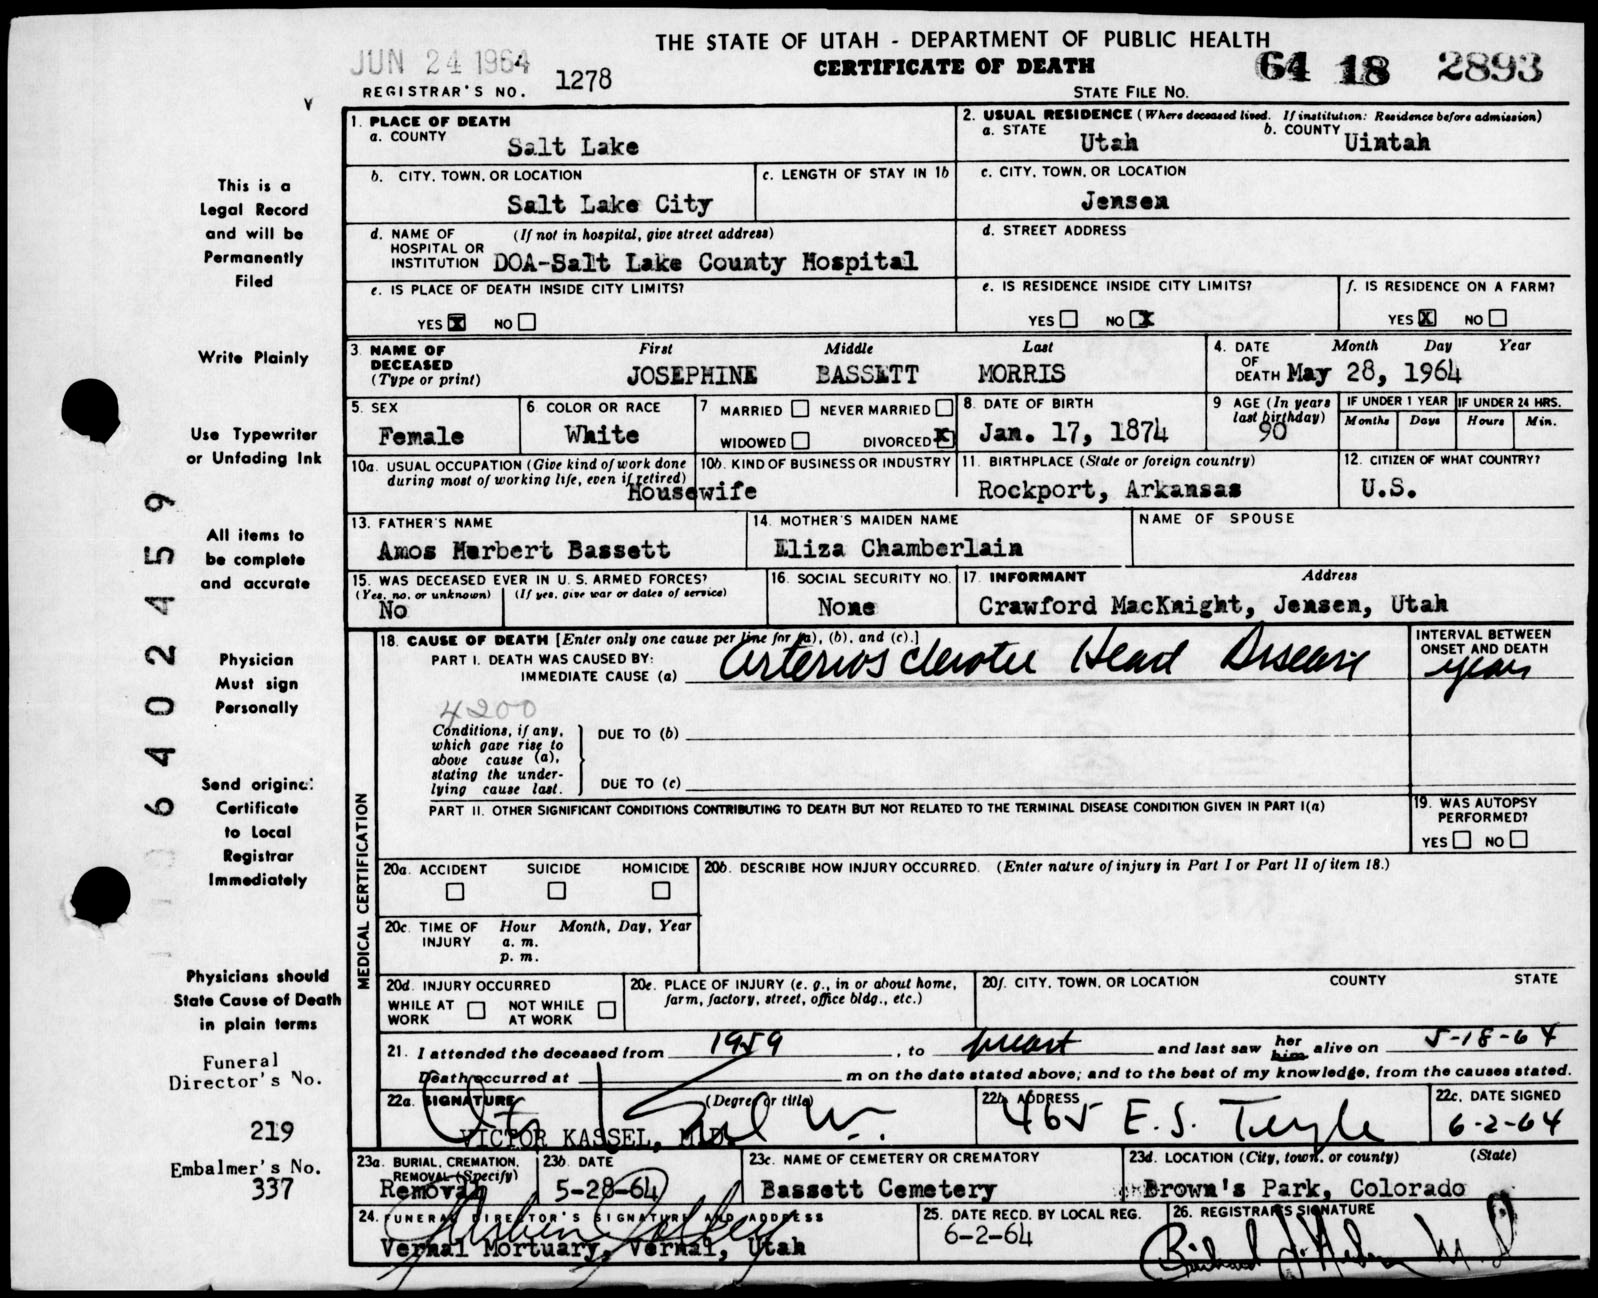 THE STATE OF UTAH - DEPARTMENT OF PUBLIC HEALTH
CERTIFICATE OF DEATH
JUN 24 1964
REGISTRAR'S NO. 1278
64 18 2893
STATE FILE NO.
V
1. PLACE OF DEATH
a. COUNTY
Salt Lake
2. USUAL RESIDENCE (Where deceased lived. If institution: Residence before admission)
a. STATE b. COUNTY
Utah Uintah
b. CITY, TOWN, OR LOCATION
Salt Lake City
c. LENGTH OF STAY IN 1b
c. CITY, TOWN, OR LOCATION
Jensen
d. NAME OF HOSPITAL OR INSTITUTION (If not in hospital, give street address)
DOA-Salt Lake County Hospital
d. STREET ADDRESS
e. IS PLACE OF DEATH INSIDE CITY LIMITS?
YES X NO
e. IS RESIDENCE INSIDE CITY LIMITS?
YES NO X
f. IS RESIDENCE ON A FARM?
YES X NO
3. NAME OF DECEASED (Type or print)
First Middle Last
JOSEPHINE BASSETT MORRIS
4. DATE OF DEATH
Month Day Year
May 28, 1964
5. SEX
Female
6. COLOR OR RACE
White
7 MARRIED NEVER MARRIED
WIDOWED DIVORCED X
8. DATE OF BIRTH
Jan. 17, 1874
9 AGE (In years last birthday)
90
IF UNDER 1 YEAR
Months Days
IF UNDER 24 HRS.
Hours Min.
10a. USUAL OCCUPATION (Give kind of work done during most of working life, even if retired)
Housewife
10b. KIND OF BUSINESS OR INDUSTRY
11. BIRTHPLACE (State or foreign country)
Rockport, Arkansas
12. CITIZEN OF WHAT COUNTRY?
U.S.
13. FATHER'S NAME
Amos Herbert Bassett
14. MOTHER'S MAIDEN NAME
Eliza Chamberlain
NAME OF SPOUSE
15. WAS DECEASED EVER IN U. S. ARMED FORCES?
(Yes, no, or unknown) (If yes, give war or dates of service)
No
16. SOCIAL SECURITY NO.
None
17. INFORMANT Address
Crawford MacKnight, Jensen, Utah
MEDICAL CERTIFICATION
18. CAUSE OF DEATH [Enter only one cause per line for (a), (b), and (c).]
PART I. DEATH WAS CAUSED BY:
IMMEDIATE CAUSE (a) Arteriosclerotic Heart Disease
INTERVAL BETWEEN ONSET AND DEATH
years
4200
Conditions, if any, which gave rise to above cause (a), stating the underlying cause last.
DUE TO (b)
DUE TO (c)
PART II. OTHER SIGNIFICANT CONDITIONS CONTRIBUTING TO DEATH BUT NOT RELATED TO THE TERMINAL DISEASE CONDITION GIVEN IN PART I(a)
19. WAS AUTOPSY PERFORMED?
YES NO
20a. ACCIDENT SUICIDE HOMICIDE
20b. DESCRIBE HOW INJURY OCCURRED. (Enter nature of injury in Part I or Part II of item 18.)
20c. TIME OF INJURY Hour Month, Day, Year
a. m.
p. m.
20d. INJURY OCCURRED
WHILE AT WORK NOT WHILE AT WORK
20e. PLACE OF INJURY (e. g., in or about home, farm, factory, street, office bldg., etc.)
20f. CITY, TOWN, OR LOCATION COUNTY STATE
21. I attended the deceased from 1959, to present and last saw her him alive on 5-18-64
Death occurred at m on the date stated above; and to the best of my knowledge, from the causes stated.
22a. SIGNATURE (Degree or title)
VICTOR KASSEL, M.D.
22b. ADDRESS
465 E. S. Temple
22c. DATE SIGNED
6-2-64
23a. BURIAL, CREMATION, REMOVAL (Specify)
Removal
23b. DATE
5-28-64
23c. NAME OF CEMETERY OR CREMATORY
Bassett Cemetery
23d. LOCATION (City, town, or county) (State)
Brown's Park, Colorado
24. FUNERAL DIRECTOR'S SIGNATURE AND ADDRESS
Vernal Mortuary, Vernal, Utah
25. DATE RECD. BY LOCAL REG.
6-2-64
26. REGISTRAR'S SIGNATURE
This is a
Legal Record
and will be
Permanently
Filed
Write Plainly
Use Typewriter
or Unfading Ink
All items to
be complete
and accurate
Physician
Must sign
Personally
Send original
Certificate
to Local
Registrar
Immediately
Physicians should
State Cause of Death
in plain terms
Funeral
Director's No.
219
Embalmer's No.
337
6402459